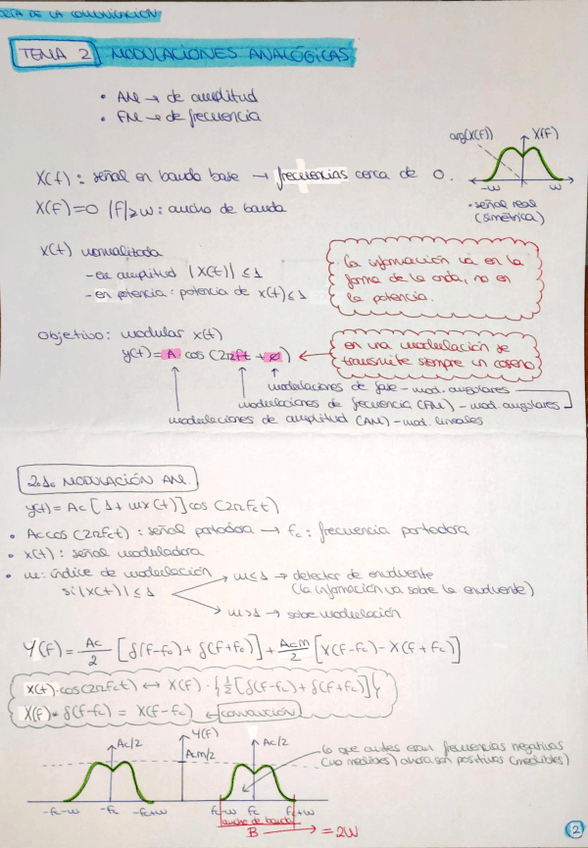 DE LA COMUNICACIÓN
TEMA 2 MODULACIONES ANALÓGICAS
• AM → de amplitud
• FM → de frecuencia
arg(X(F)) X(F)
-w w
• señal real
(simétrica)
X(t) : señal en banda base → frecuencias cerca de 0.
X(F)=0 |F|≥w : ancho de banda
X(t) normalizada
- en amplitud |X(t)| ≤ 1
- en potencia : potencia de x(t) ≤ 1
La información va en la
forma de la onda, no en
la potencia.
Objetivo: modular x(t)
y(t) = A cos (2πft + ø)
en una modulación se
transmite siempre un coseno
modulaciones de fase - mod. angulares
modulaciones de frecuencia (FM) - mod. angulares
modulaciones de amplitud (AM) - mod. lineales
2.1. MODULACIÓN AM.
y(t) = Ac [1 + mx(t)] cos (2πfct)
• Ac cos (2πfct) : señal portadora → fc : frecuencia portadora
• x(t) : señal moduladora
• m : índice de modulación
si |x(t)| ≤ 1
m≤1 → detector de envolvente
(la información va sobre la envolvente)
m>1 → sobremodulación
Y(F) = Ac/2 [δ(F-fc) + δ(F+fc)] + Acm/2 [X(F-fc) - X(F+fc)]
x(t)·cos(2πfct) ↔ X(F) · {1/2 [δ(F-fc) + δ(F+fc)]}
X(F) * δ(F-fc) = X(F-fc) ← convolución
Ac/2 Y(F) Ac/2
Acm/2
lo que antes eran frecuencias negativas
(no medibles) ahora son positivas (medibles)
-fc-w -fc -fc+w fc-w fc fc+w
ancho de banda
B → = 2W
2